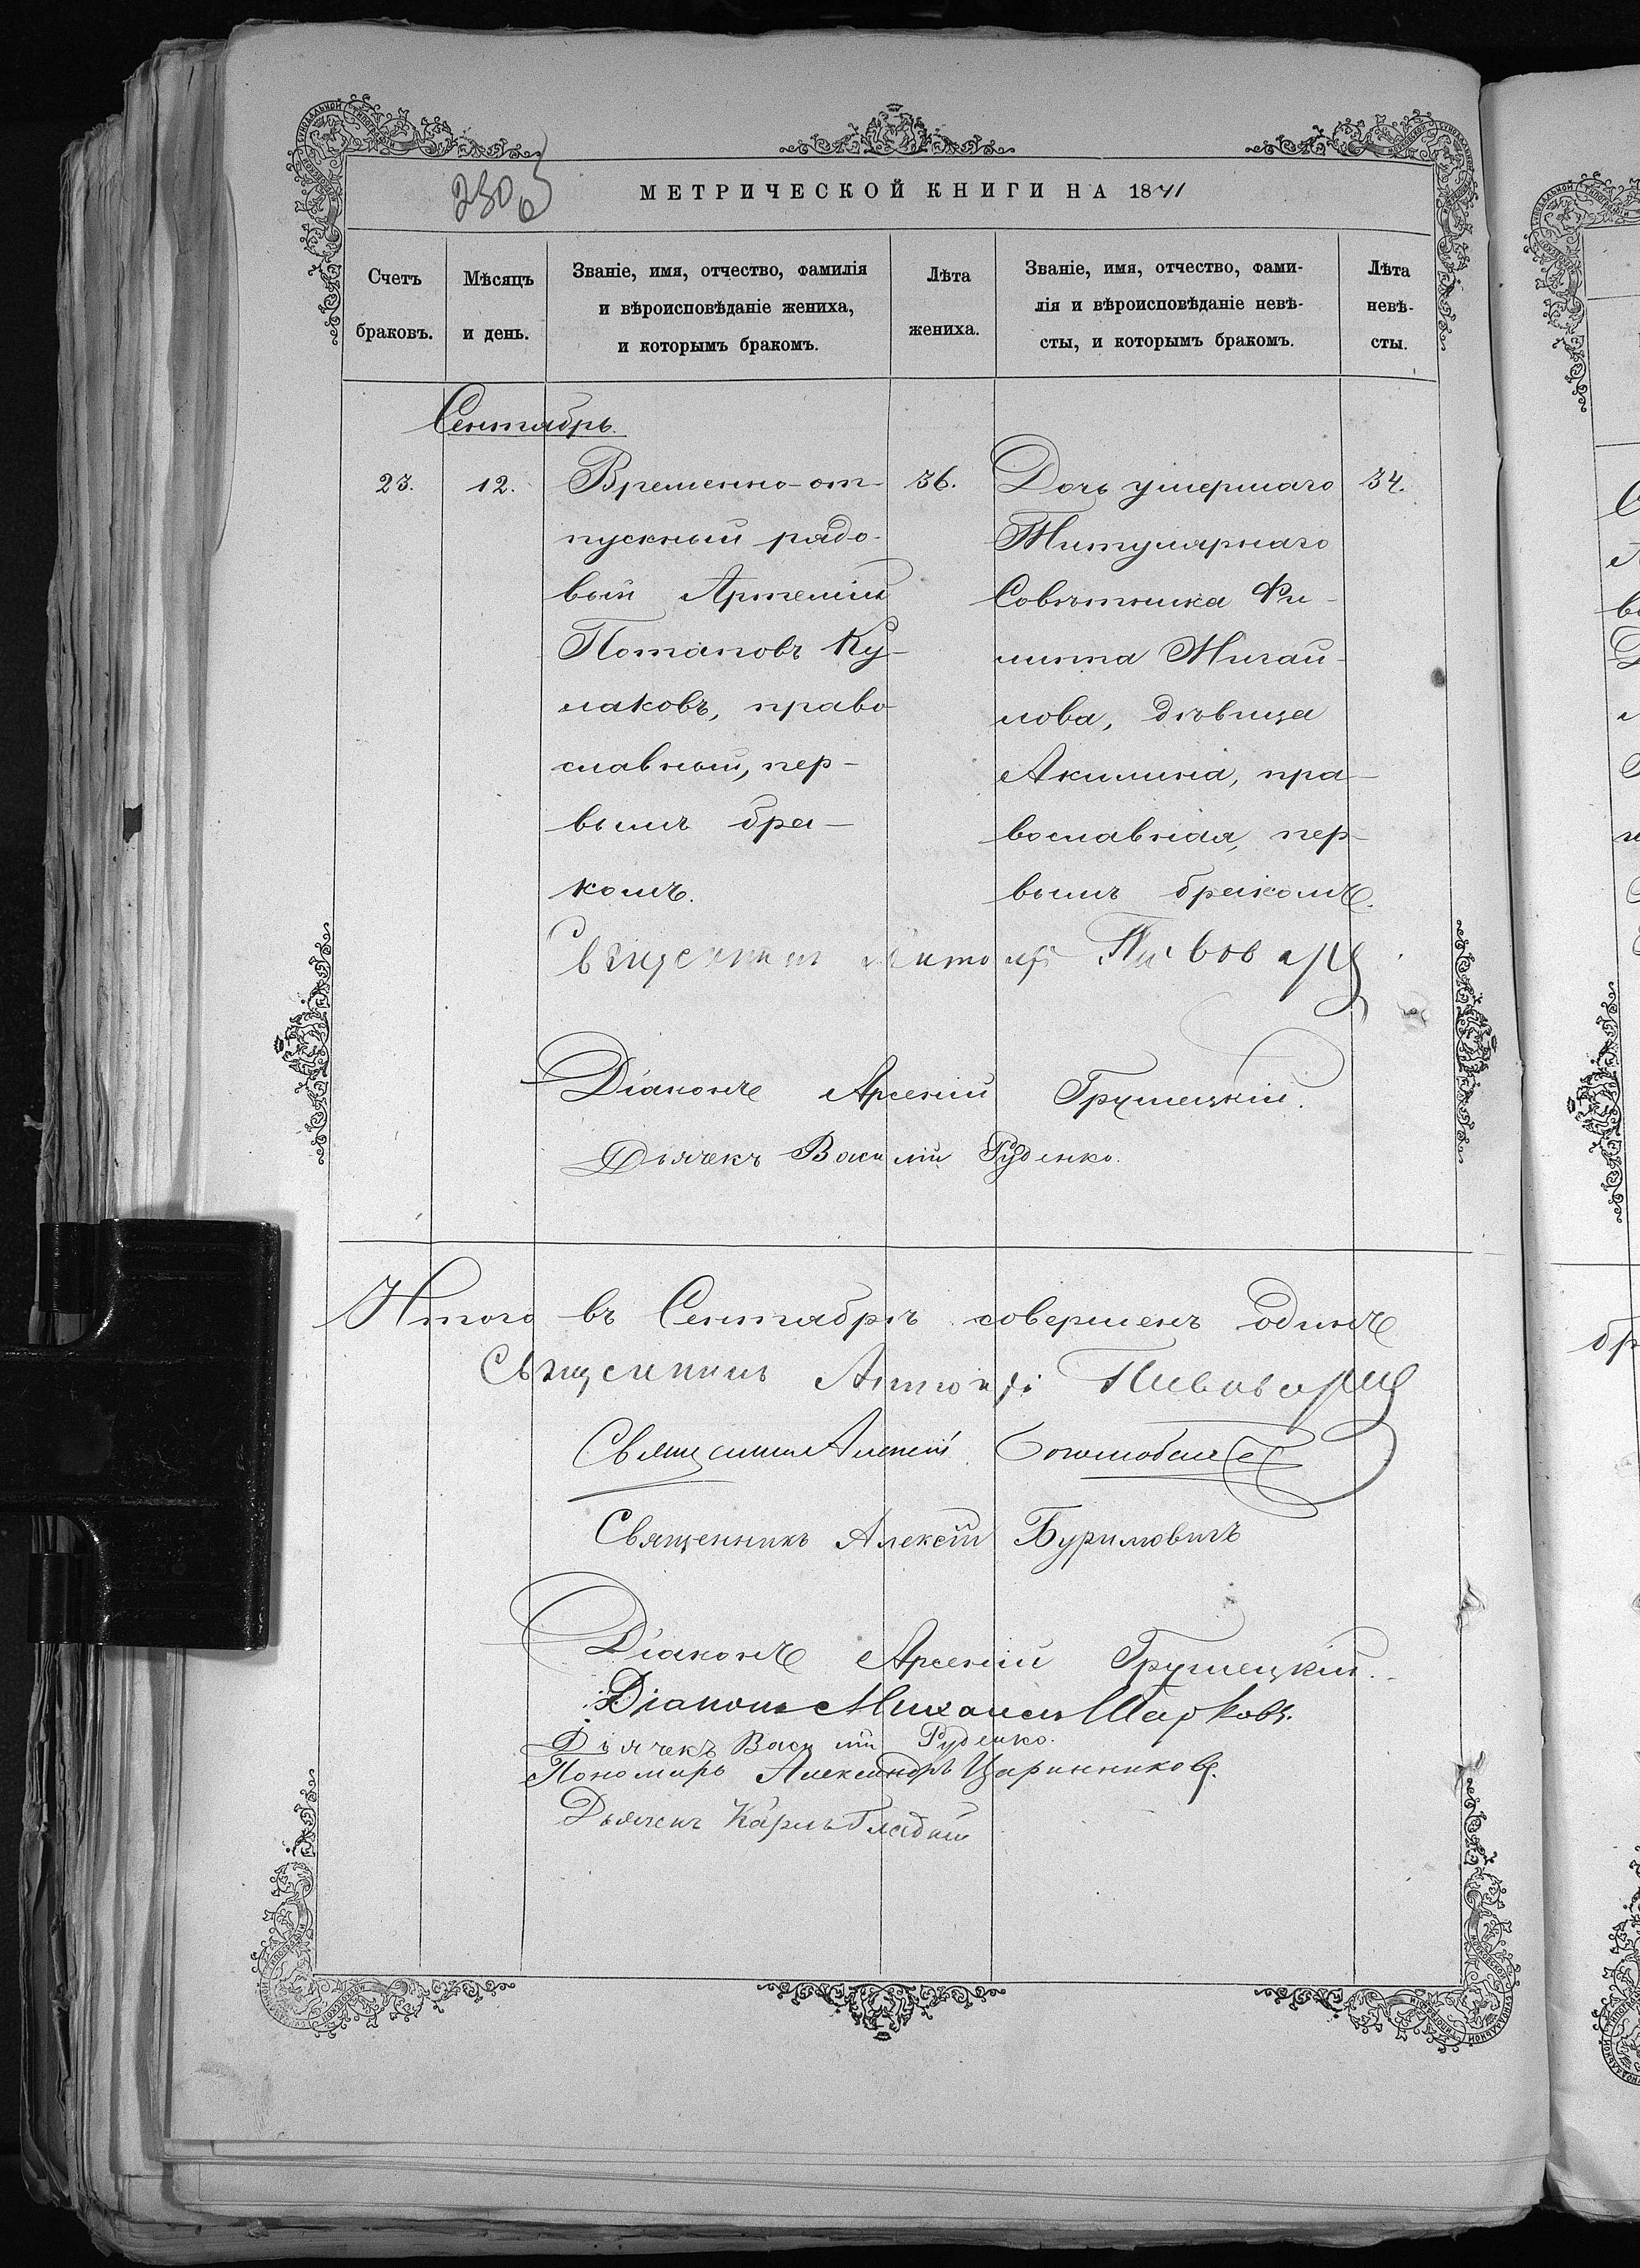 230 об
МЕТРИЧЕСКОЙ КНИГИ НА 1871
Счетъ браковъ.
Мѣсяцъ и день.
Званіе, имя, отчество, фамилія
и вѣроисповѣданіе жениха,
и которымъ бракомъ.
Лѣта жениха.
Званіе, имя, отчество, фами-
лія и вѣроисповѣданіе невѣ-
сты, и которымъ бракомъ.
Лѣта невѣ-
сты.
Сентябрь.
23.
12.
Временно-от-
пускный рядо-
вый Артемій
Потаповъ Ку-
лаковъ, право
славный, пер-
вымъ бра-
комъ.
36.
Дочь умершаго
Титулярнаго
Совѣтника Фи-
липа Михай-
лова, дѣвица
Акилина, пра-
вославная, пер-
вымъ бракомъ.
34.
Священникъ Антоній Пивоваръ
Діаконъ Арсеній Грушецкій.
Дьячекъ Василій Руденко.
Итого въ Сентябрѣ совершенъ одинъ
Священникъ Антоній Пивоваръ
Священникъ Алексій
Священникъ Алексій Буримовичъ
Діаконъ Арсеній Грушецкій.
Діаконъ Михаилъ Шарковъ.
Діячекъ Василій Руденко.
Пономарь Александръ Царинниковъ.
Дьячекъ Карпъ Гладкій